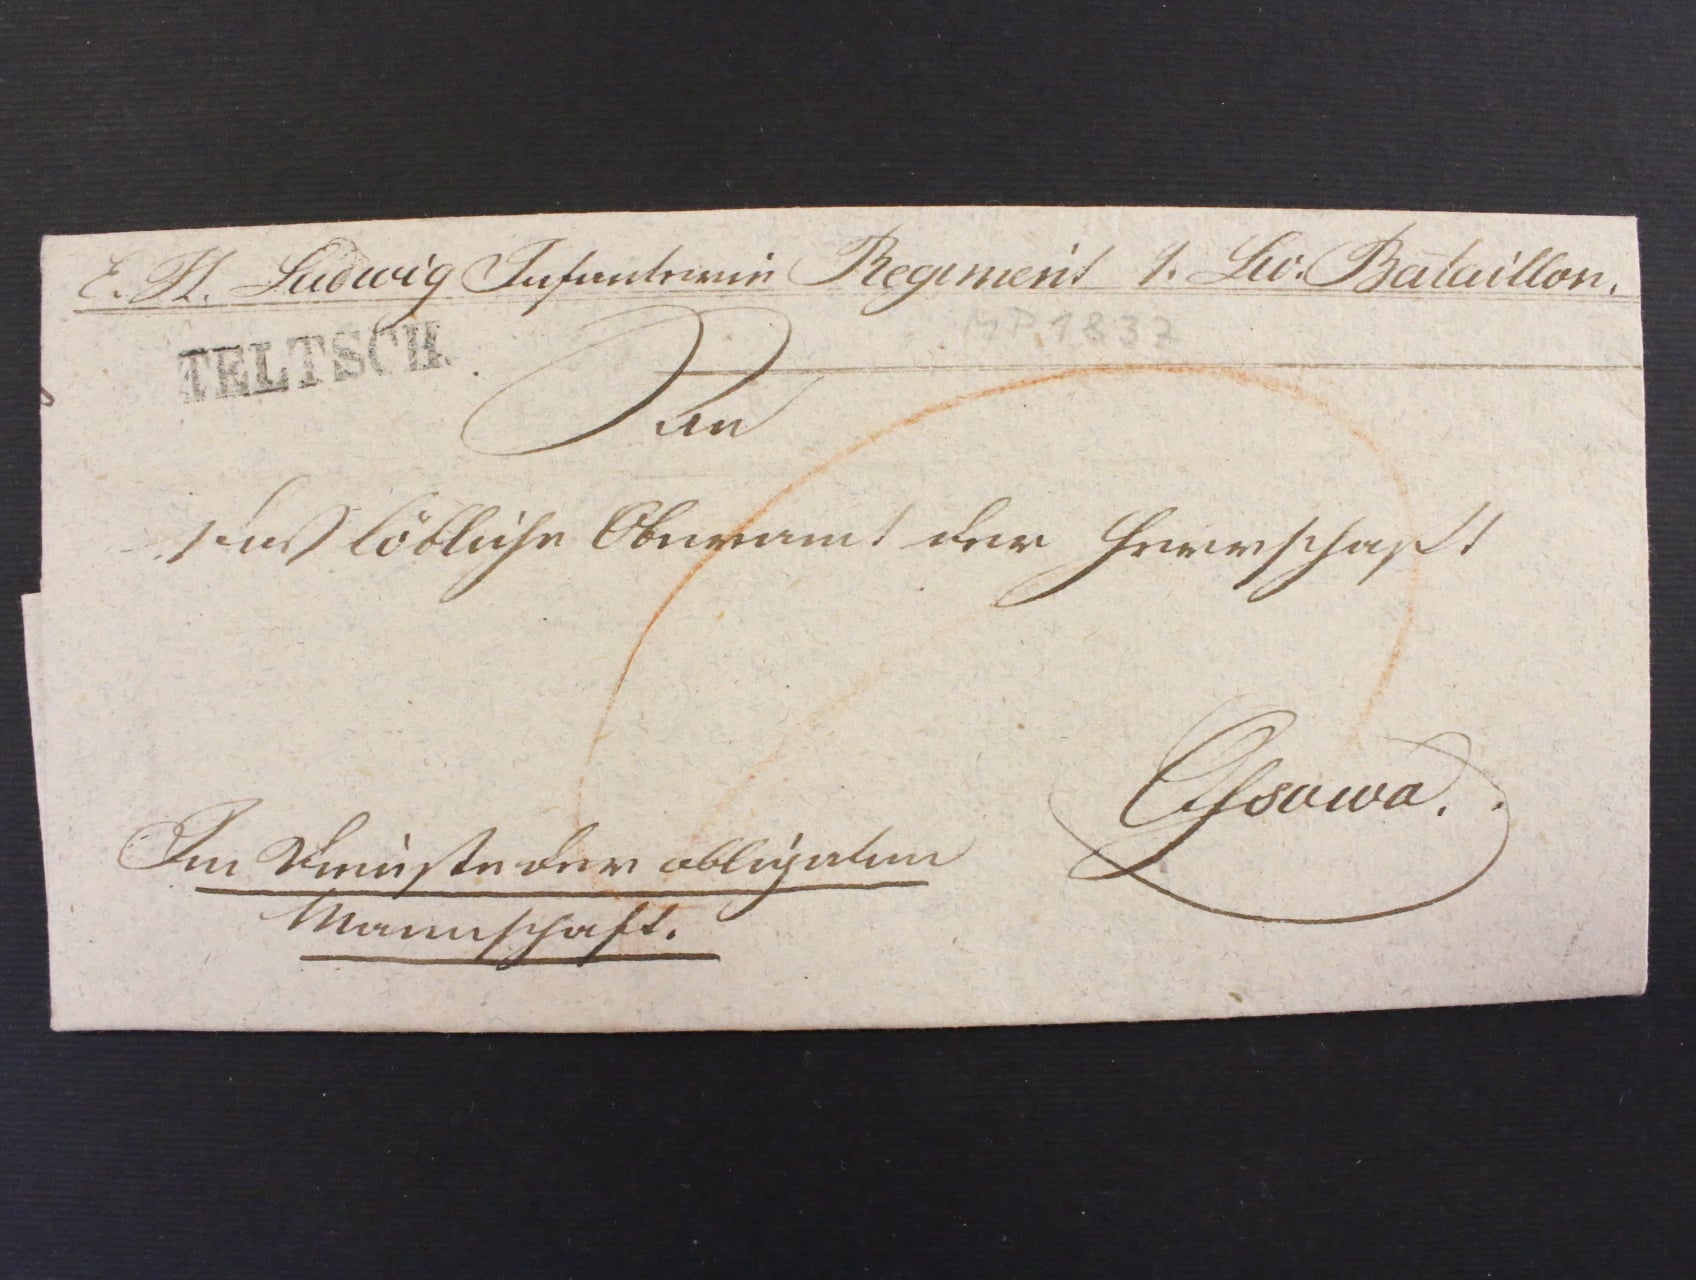 E. H. Ludwig Infanterie Regiment 1. Lw. Bataillon.
MP. 1837
TELTSCH.
An
das löbliche Oberamt der Herrschaft
Ossowa.
Im Dienste der obligaten
Mannschaft.